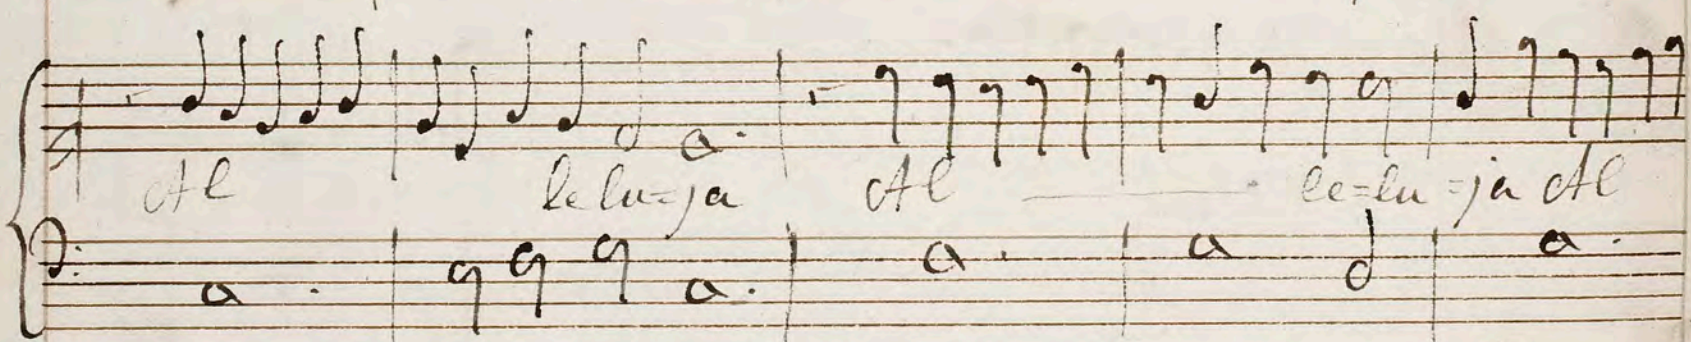 Al lelu=ja Al le=lu=ja Al